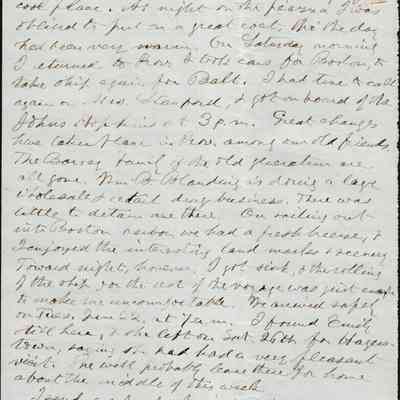 took place. At night on the piazza I was
obliged to put on a great coat, tho' the day
has been very warm. On Saturday morning
I returned to Prov. & took cars for Boston, to
take ship again for Balt. I had time to call
again on Mrs. Stanford, & got on board of the
Johns Hopkins at 3 p.m. Great changes
have taken place in Prov. among our old friends.
The family of the old generation are
all gone. Wm B. Blanding is doing a large
wholesale & retail drug business. There was
little to detain me there. On sailing out
into Boston harbor we had a fresh breeze, &
I enjoyed the interesting land marks & scenery
Toward night, however, I got sick, & the rolling
of the ship for the rest of the voyage was just enough
to make me uncomfortable. We arrived safely
on Tues. June 22, at 7 a.m. I found Emily
still here, & she left on Sat. 26th for Hagers-
town, saying she had had a very pleasant
visit. We will probably leave here for home
about the middle of this week